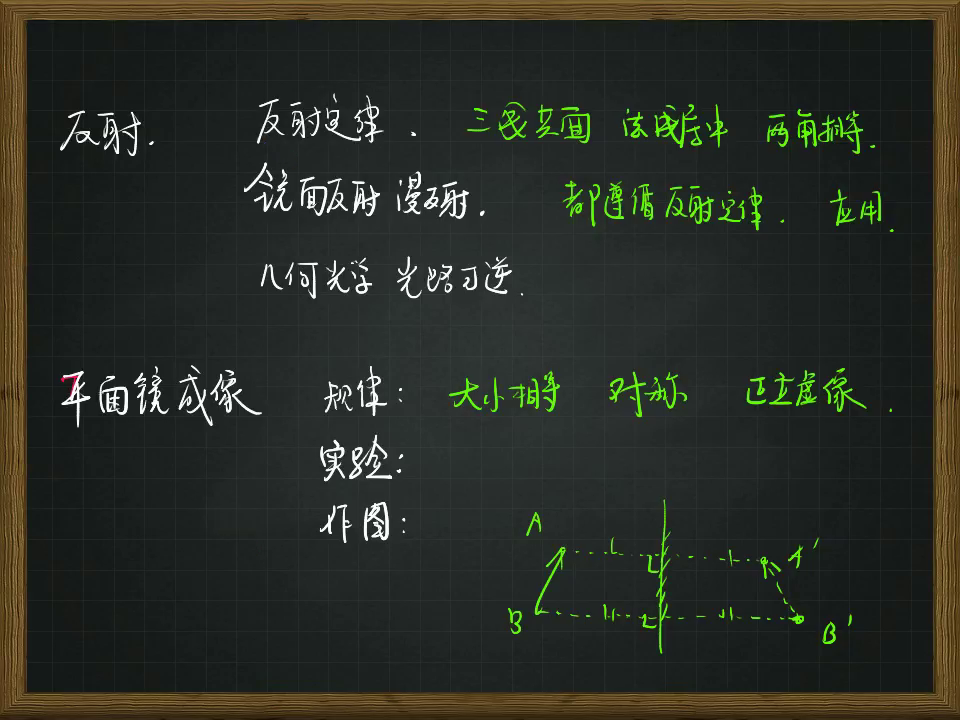 反射. 反射定律、 三线共面 法线居中 两角相等.
镜面反射 漫反射. 都遵循反射定律. 应用.
几何光学 光路可逆.
平面镜成像 规律: 大小相等 对称 正立虚像.
实验:
作图:
A A'
B B'